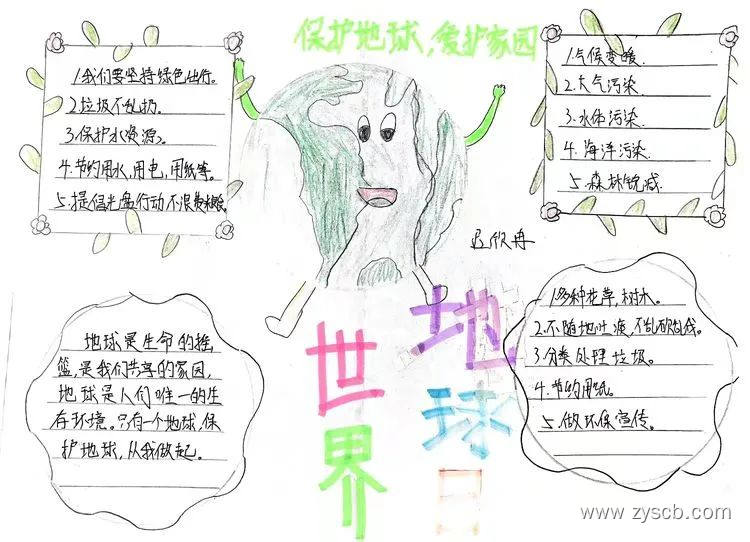 保护地球，爱护家园
1.我们要坚持绿色出行。
2.垃圾不乱扔。
3.保护水资源。
4.节约用水，用电，用纸等。
5.提倡光盘行动不浪费粮食。
1.气候变暖
2.大气污染.
3.水体污染.
4.海洋污染.
5.森林锐减.
欣冉
世界
地球日
地球是生命的摇
篮，是我们共享的家园，
地球是人们唯一的生
存环境。只有一个地球，保
护地球，从我做起。
1.多种花草，树木。
2.不随地吐痰，不乱
3.分类处理垃圾。
4.节约用纸。
5.做环保宣传。
www.zyscb.com